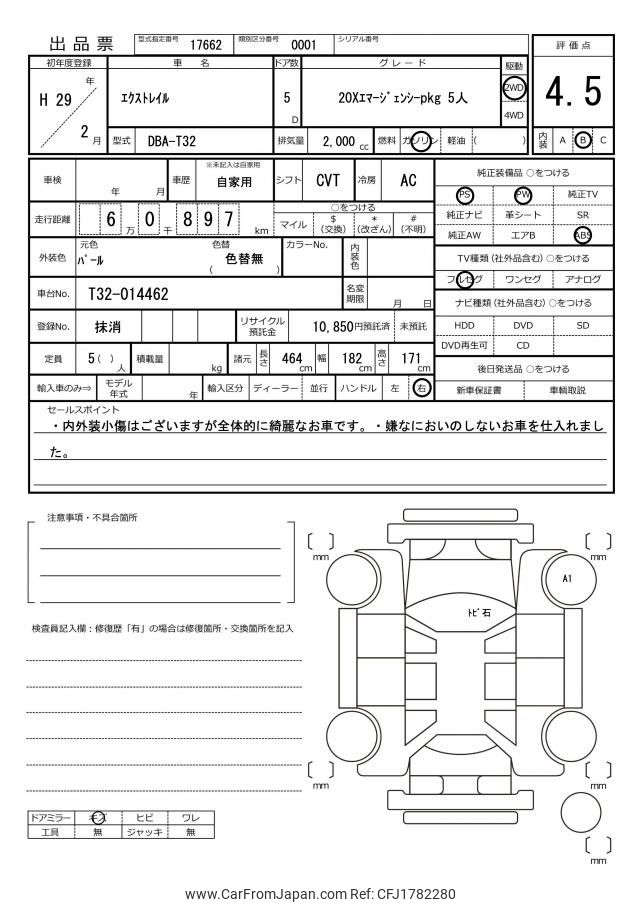 出品票
型式指定番号 17662 類別区分番号 0001 シリアル番号
評価点
4.5
内装 A B C
初年度登録 車名 ドア数 グレード 駆動
H 29 年 / 2 月
エクストレイル
5 D
20Xエマージェンシーpkg 5人
2WD
4WD
型式 DBA-T32 排気量 2,000 cc 燃料 ガソリン 軽油 ( )
車検 年 月 車歴 ※未記入は自家用 自家用 シフト CVT 冷房 AC
走行距離 6 万 0 千 8 9 7 km
○をつける
マイル $(交換) *(改ざん) #(不明)
外装色 元色 パール 色替 ( 色替無 ) カラーNo. 内装色
車台No. T32-014462 名変期限 月 日
登録No. 抹消 リサイクル預託金 10,850円預託済 未預託
定員 5( )人 積載量 kg 諸元 長さ 464 cm 幅 182 cm 高さ 171 cm
輸入車のみ⇒ モデル年式 年 輸入区分 ディーラー 並行 ハンドル 左 右
純正装備品 ○をつける
PS PW 純正TV
純正ナビ 革シート SR
純正AW エアB ABS
TV種類(社外品含む)○をつける
フルセグ ワンセグ アナログ
ナビ種類(社外品含む)○をつける
HDD DVD SD
DVD再生可 CD
後日発送品 ○をつける
新車保証書 車輌取説
セールスポイント
・内外装小傷はございますが全体的に綺麗なお車です。・嫌なにおいのしないお車を仕入れまし
た。
注意事項・不具合箇所
検査員記入欄：修復歴「有」の場合は修復箇所・交換箇所を記入
mm
mm
A1
トビ石
mm
mm
mm
ドアミラー キズ ヒビ ワレ
工具 無 ジャッキ 無
www.CarFromJapan.com Ref: CFJ1782280